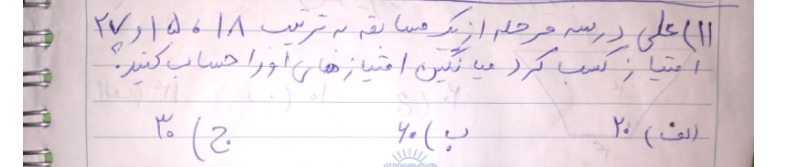 ۱۱) علی در سه مرحله از یک مسابقه به ترتیب ۱۸، ۱۵ و ۲۷
امتیاز کسب کرد میانگین امتیازهای او را حساب کنید؟
الف) ۲۰ ب) ۶۰ ج) ۳۰